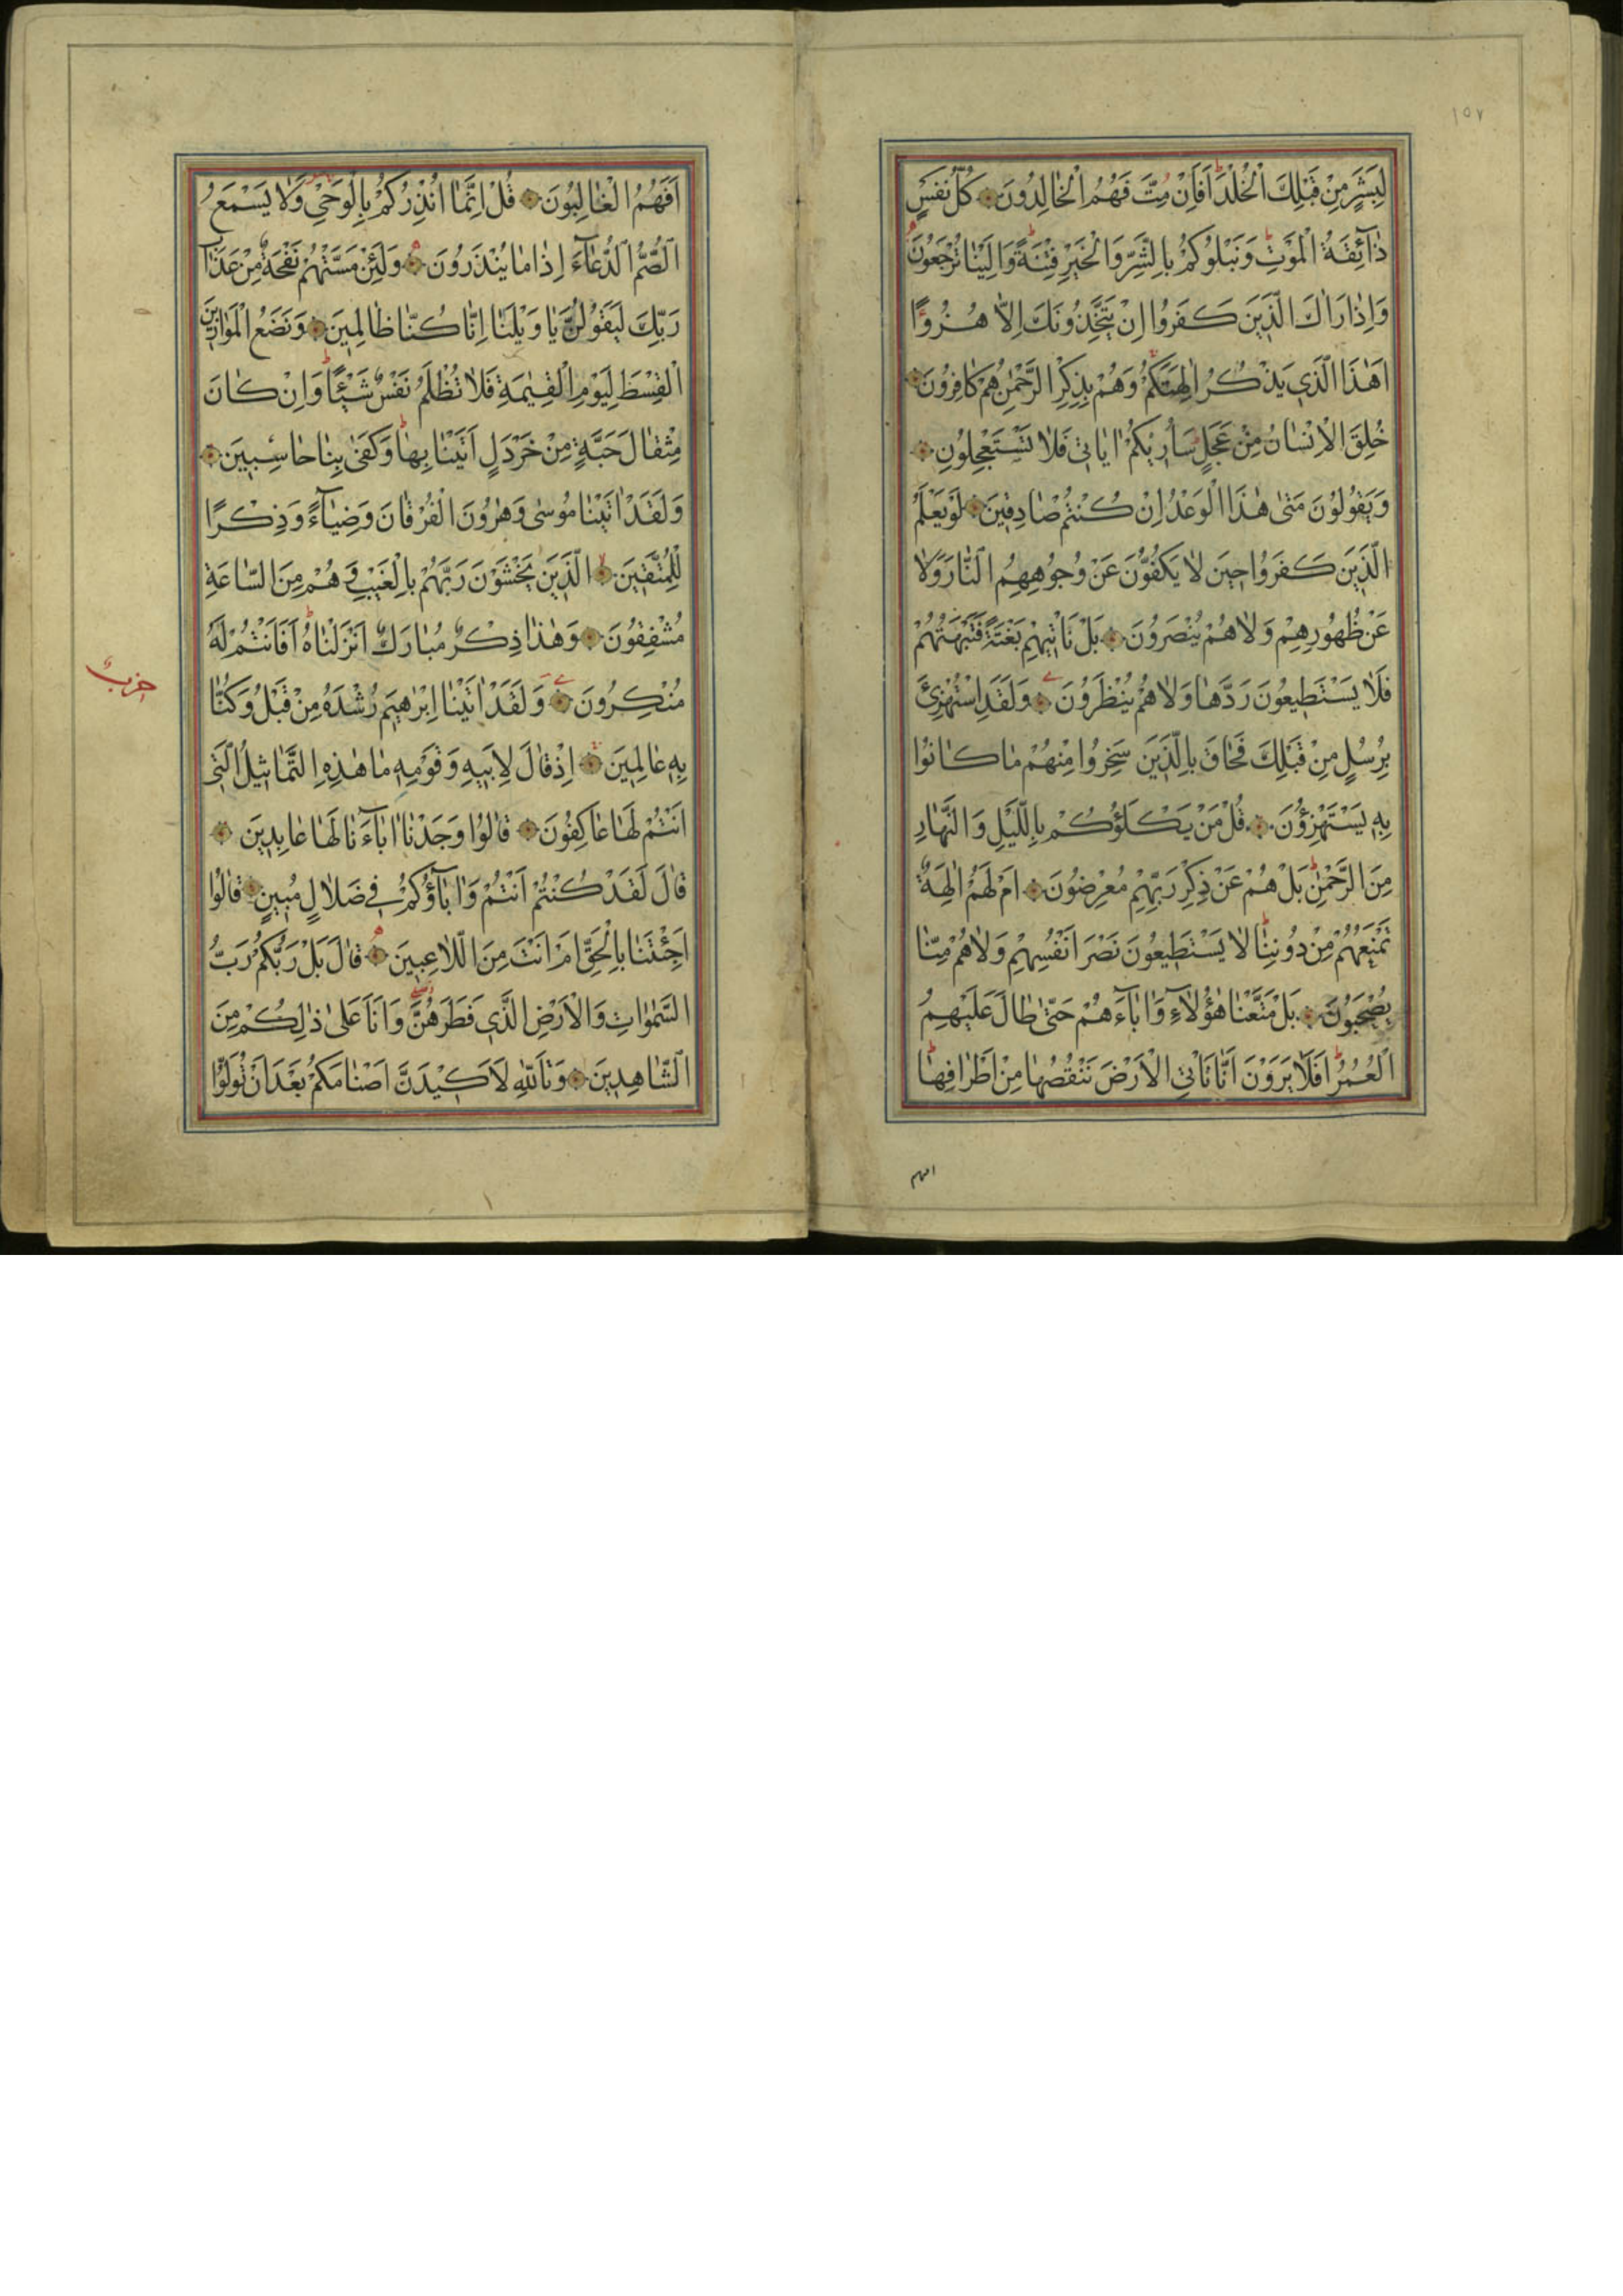 ١٥٧
لِبَشَرٍ مِنْ قَبْلِكَ الْخُلْدَ اَفَاِنْ مِتَّ فَهُمُ الْخَالِدُونَ كُلُّ نَفْسٍ
ذَآئِقَةُ الْمَوْتِ وَنَبْلُوكُمْ بِالشَّرِّ وَالْخَيْرِ فِتْنَةً وَاِلَيْنَا تُرْجَعُونَ
وَاِذَا رَاٰكَ الَّذِينَ كَفَرُوا اِنْ يَتَّخِذُونَكَ اِلَّا هُزُوًا
اَهٰذَا الَّذِي يَذْكُرُ اٰلِهَتَكُمْ وَهُمْ بِذِكْرِ الرَّحْمٰنِ هُمْ كَافِرُونَ
خُلِقَ الْاِنْسَانُ مِنْ عَجَلٍ سَاُرِيكُمْ اٰيَاتِي فَلَا تَسْتَعْجِلُونِ
وَيَقُولُونَ مَتٰى هٰذَا الْوَعْدُ اِنْ كُنْتُمْ صَادِقِينَ لَوْ يَعْلَمُ
الَّذِينَ كَفَرُوا حِينَ لَا يَكُفُّونَ عَنْ وُجُوهِهِمُ النَّارَ وَلَا
عَنْ ظُهُورِهِمْ وَلَا هُمْ يُنْصَرُونَ بَلْ تَاْتِيهِمْ بَغْتَةً فَتَبْهَتُهُمْ
فَلَا يَسْتَطِيعُونَ رَدَّهَا وَلَا هُمْ يُنْظَرُونَ وَلَقَدِ اسْتُهْزِئَ
بِرُسُلٍ مِنْ قَبْلِكَ فَحَاقَ بِالَّذِينَ سَخِرُوا مِنْهُمْ مَا كَانُوا
بِهِ يَسْتَهْزِؤُنَ قُلْ مَنْ يَكْلَؤُكُمْ بِاللَّيْلِ وَالنَّهَارِ
مِنَ الرَّحْمٰنِ بَلْ هُمْ عَنْ ذِكْرِ رَبِّهِمْ مُعْرِضُونَ اَمْ لَهُمْ اٰلِهَةٌ
تَمْنَعُهُمْ مِنْ دُونِنَا لَا يَسْتَطِيعُونَ نَصْرَ اَنْفُسِهِمْ وَلَا هُمْ مِنَّا
يُصْحَبُونَ بَلْ مَتَّعْنَا هٰؤُلَاءِ وَاٰبَاءَهُمْ حَتّٰى طَالَ عَلَيْهِمُ
الْعُمُرُ اَفَلَا يَرَوْنَ اَنَّا نَاْتِي الْاَرْضَ نَنْقُصُهَا مِنْ اَطْرَافِهَا
افهم
اَفَهُمُ الْغَالِبُونَ قُلْ اِنَّمَا اُنْذِرُكُمْ بِالْوَحْيِ وَلَا يَسْمَعُ
الصُّمُّ الدُّعَآءَ اِذَا مَا يُنْذَرُونَ وَلَئِنْ مَسَّتْهُمْ نَفْحَةٌ مِنْ عَذَابِ
رَبِّكَ لَيَقُولُنَّ يَا وَيْلَنَا اِنَّا كُنَّا ظَالِمِينَ وَنَضَعُ الْمَوَازِينَ
الْقِسْطَ لِيَوْمِ الْقِيٰمَةِ فَلَا تُظْلَمُ نَفْسٌ شَيْئًا وَاِنْ كَانَ
مِثْقَالَ حَبَّةٍ مِنْ خَرْدَلٍ اَتَيْنَا بِهَا وَكَفٰى بِنَا حَاسِبِينَ
وَلَقَدْ اٰتَيْنَا مُوسٰى وَهٰرُونَ الْفُرْقَانَ وَضِيَآءً وَذِكْرًا
لِلْمُتَّقِينَ الَّذِينَ يَخْشَوْنَ رَبَّهُمْ بِالْغَيْبِ وَهُمْ مِنَ السَّاعَةِ
مُشْفِقُونَ وَهٰذَا ذِكْرٌ مُبَارَكٌ اَنْزَلْنَاهُ اَفَاَنْتُمْ لَهُ
حزب
مُنْكِرُونَ وَلَقَدْ اٰتَيْنَا اِبْرٰهِيمَ رُشْدَهُ مِنْ قَبْلُ وَكُنَّا
بِهِ عَالِمِينَ اِذْ قَالَ لِاَبِيهِ وَقَوْمِهِ مَا هٰذِهِ التَّمَاثِيلُ الَّتِي
اَنْتُمْ لَهَا عَاكِفُونَ قَالُوا وَجَدْنَا اٰبَآءَنَا لَهَا عَابِدِينَ
قَالَ لَقَدْ كُنْتُمْ اَنْتُمْ وَاٰبَآؤُكُمْ فِي ضَلَالٍ مُبِينٍ قَالُوا
اَجِئْتَنَا بِالْحَقِّ اَمْ اَنْتَ مِنَ اللَّاعِبِينَ قَالَ بَلْ رَبُّكُمْ رَبُّ
السَّمٰوَاتِ وَالْاَرْضِ الَّذِي فَطَرَهُنَّ وَاَنَا عَلٰى ذٰلِكُمْ مِنَ
الشَّاهِدِينَ وَتَاللّٰهِ لَاَكِيدَنَّ اَصْنَامَكُمْ بَعْدَ اَنْ تُوَلُّوا